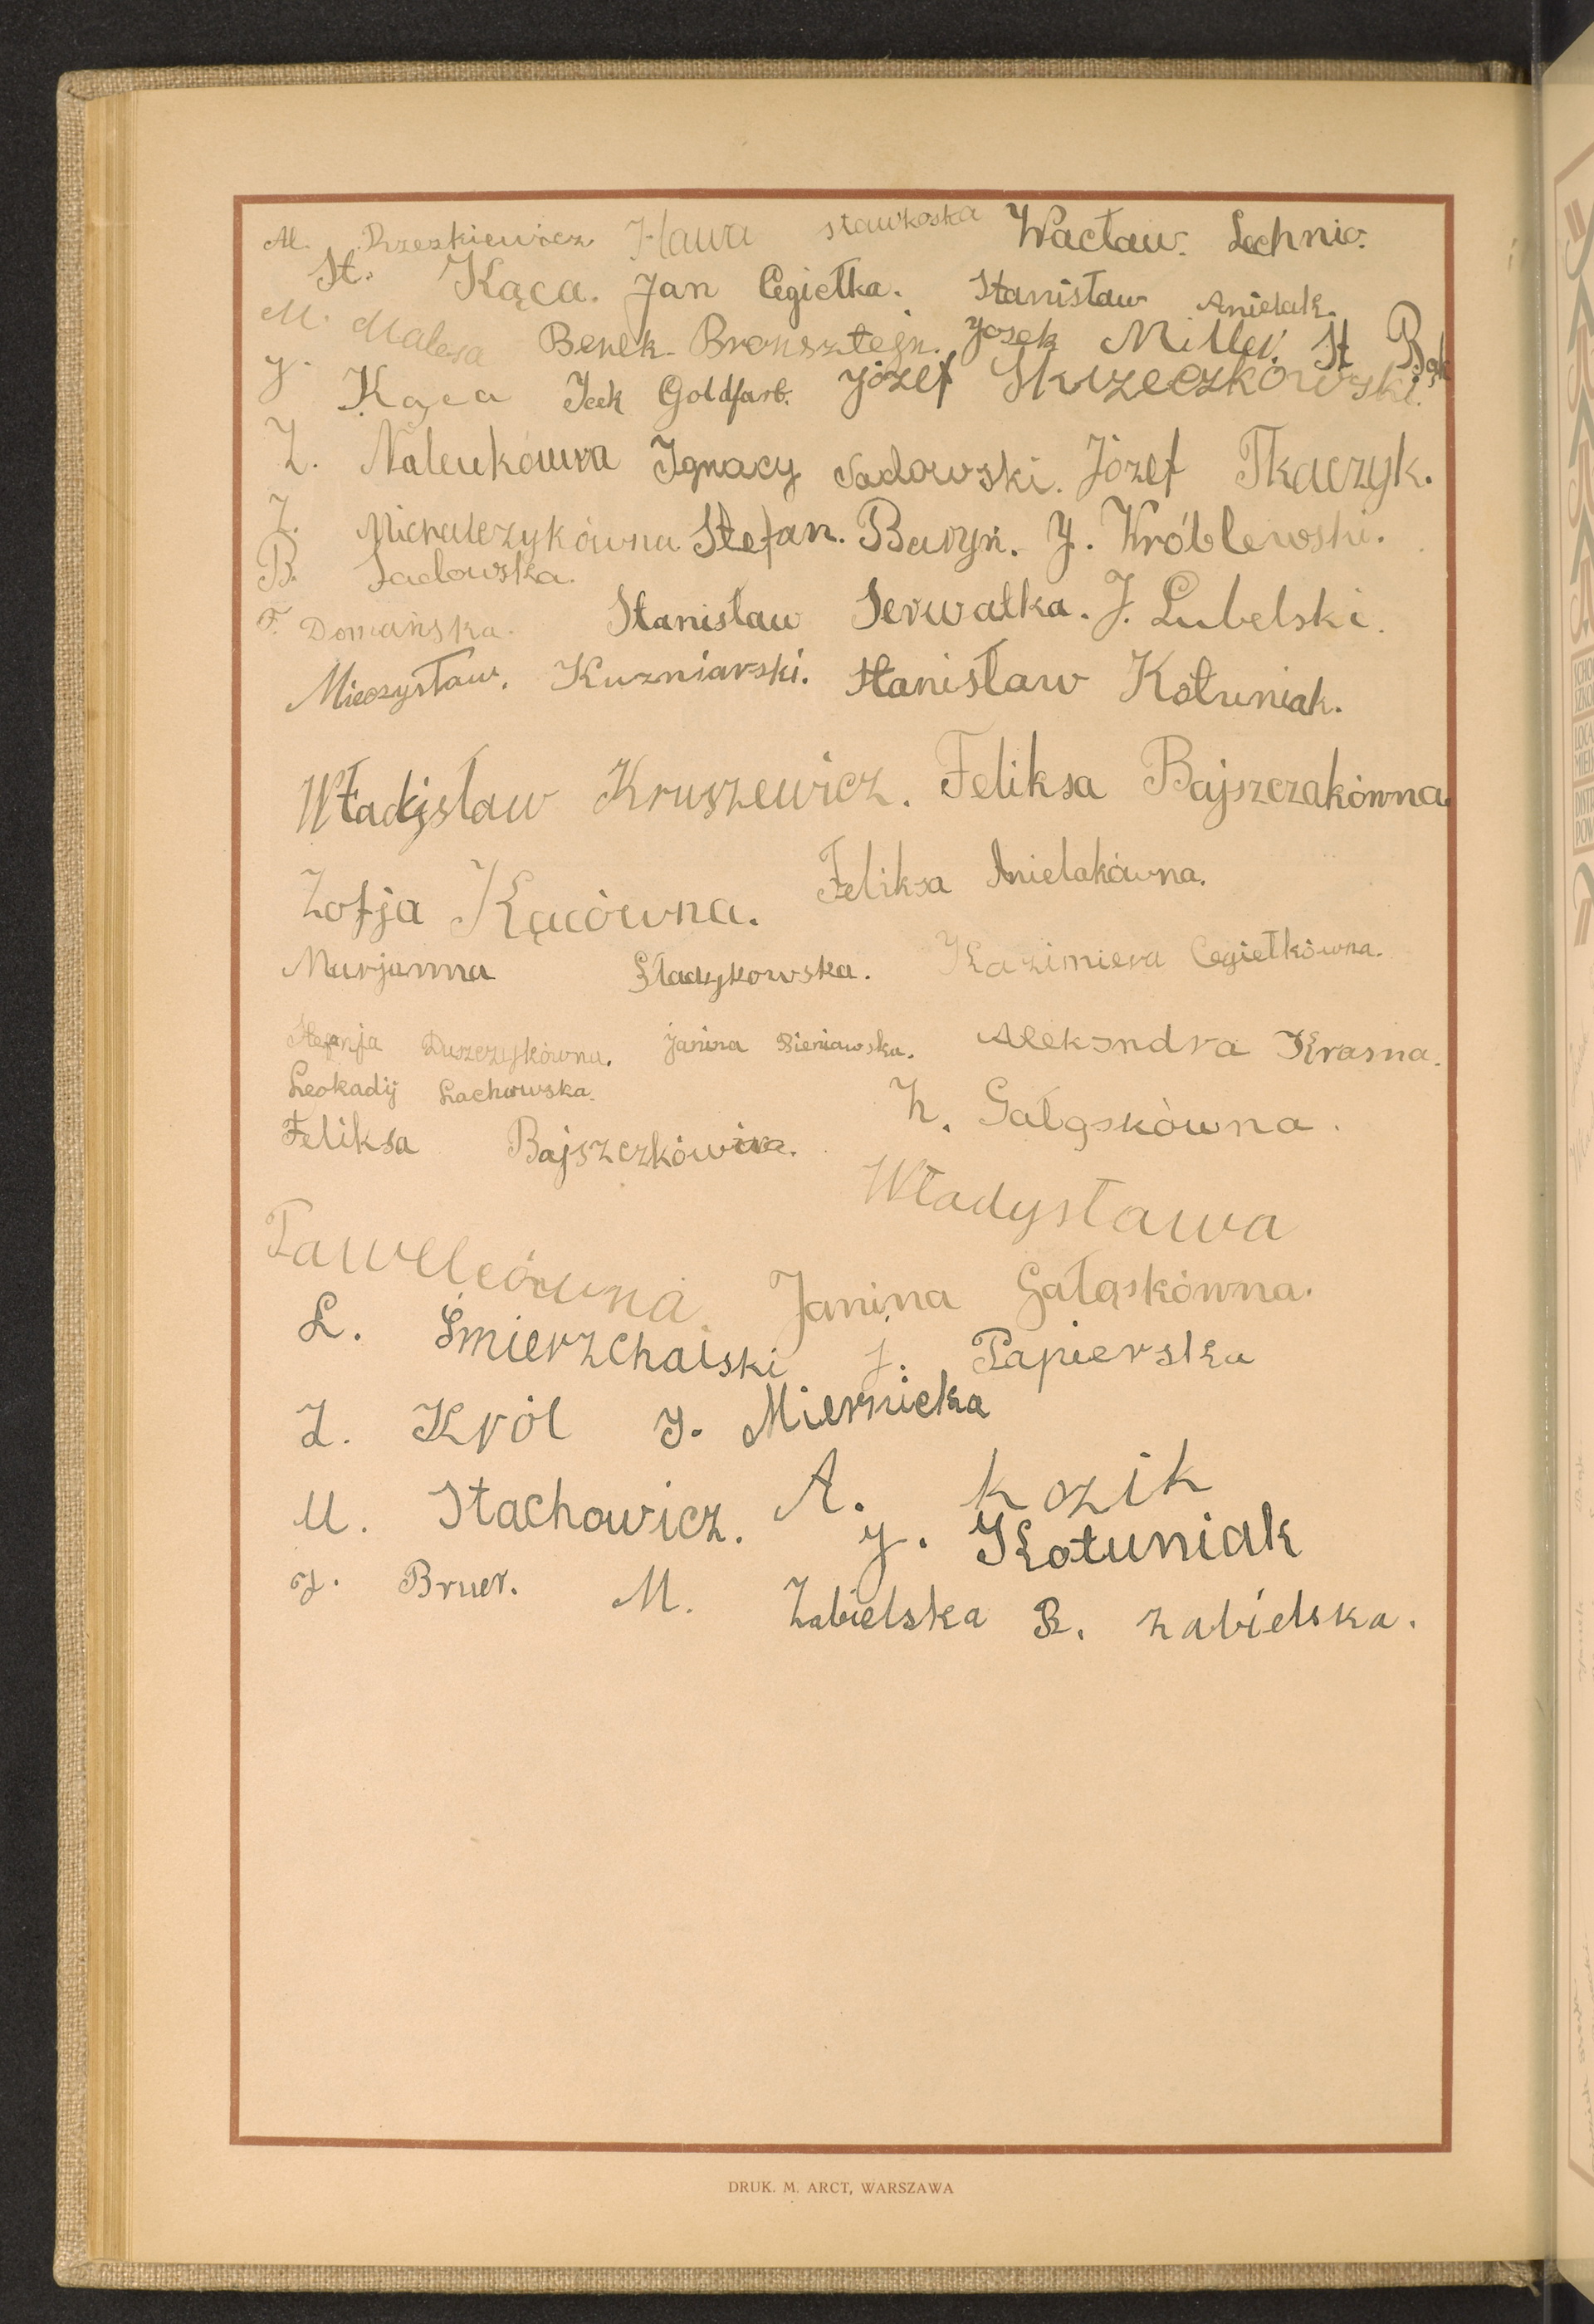 Al. Rzeszkiewicz Hawa Stawkoska Wacław. Lechnio.
St. Kąca. Jan Cegiełka. Stanisław Anielak.
M. Malesa Berek Bronsztejn. Josek Miller. St Bąk
J. Kąca Icek Goldfarb. Józef Skrzeczkowski.
Z. Ignacy Sadowski. Józef Tkaczyk.
Z. Michalczykówna Stefan. Baryn. J. Wróblewski.
B. Sadowska.
F. Domańska. Stanisław Serwatka. J. Lubelski.
Mieczysław. Kuzniarski. Stanisław Kołuniak.
Władysław Kruszewicz. Feliksa Bajszczakówna.
Zofja Kącówna. Feliksa Anielakówna.
Marjanna Sładykowska. Kazimiera Cegiełkówna.
Stefanja Duszczykówna. Janina Sieniawska. Aleksndra Krasna.
Leokadij Lachowska. Z. Gałąskówna.
Feliksa Bajszczkówna.
Władysława
Pawelcówna. Janina Gałąskówna.
L. Śmierzchalski J. Papierska
Z. Król J. Miernicka
M. Stachowicz. A. Kozik
J. Kołuniak
J. Bruer. M. Zabielska R. Zabielska.
DRUK. M. ARCT, WARSZAWA